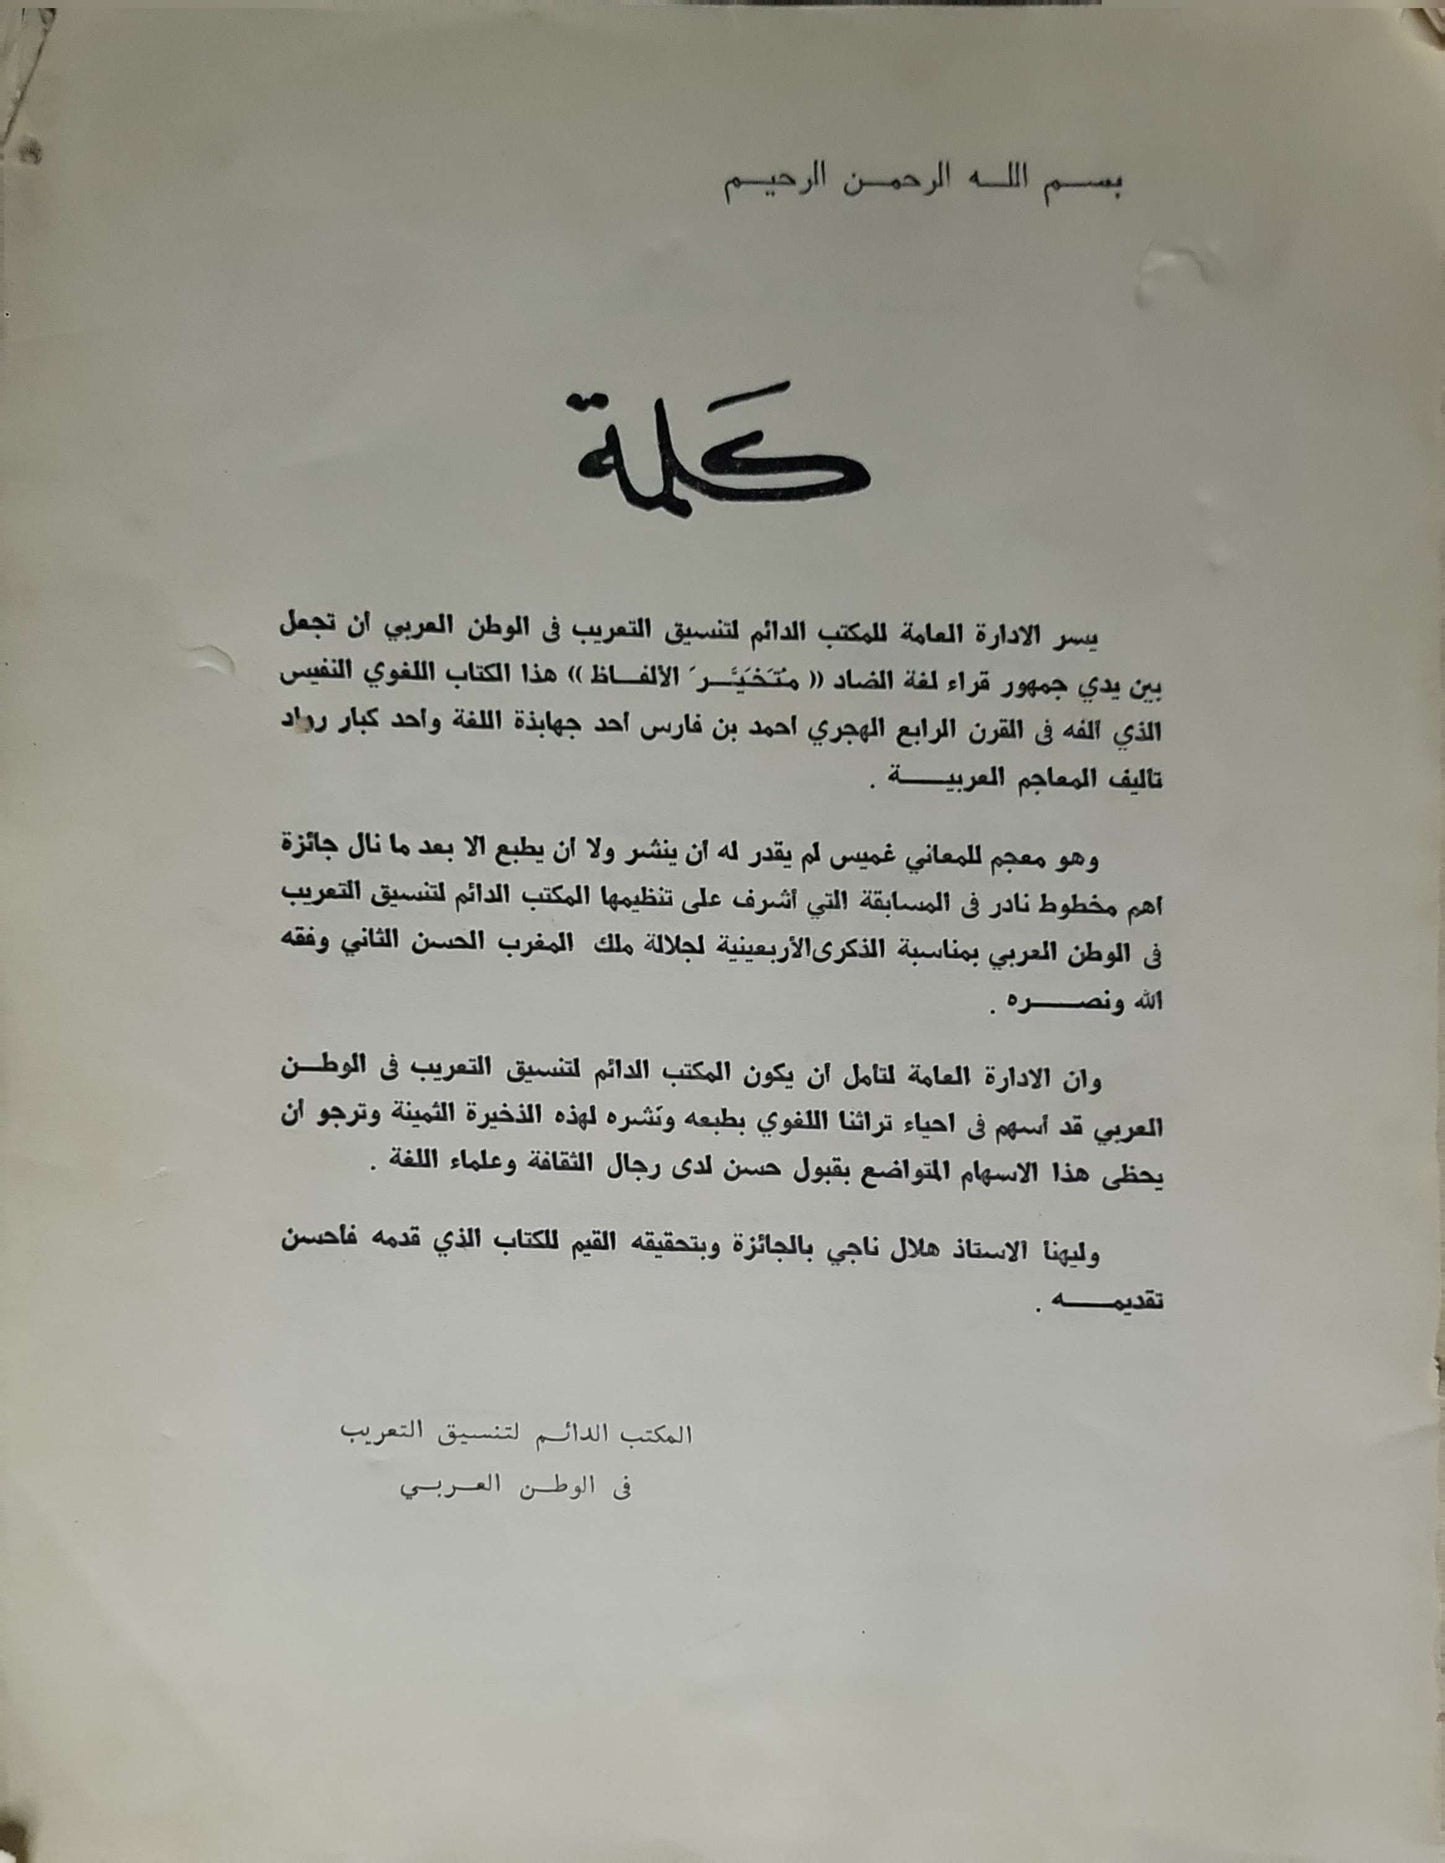 بسم الله الرحمن الرحيم
كلمة
يسر الادارة العامة للمكتب الدائم لتنسيق التعريب فى الوطن العربي أن تجعل
بين يدي جمهور قراء لغة الضاد (( مُتَخَيَّــر الألفــاظ )) هذا الكتاب اللغوي النفيس
الذي ألفه فى القرن الرابع الهجري أحمد بن فارس أحد جهابذة اللغة وأحد كبار رواد
تأليف المعاجم العربيــــة .
وهو معجم للمعاني غميس لم يقدر له أن ينشر ولا أن يطبع الا بعد ما نال جائزة
أهم مخطوط نادر فى المسابقة التي أشرف على تنظيمها المكتب الدائم لتنسيق التعريب
فى الوطن العربي بمناسبة الذكرى الأربعينية لجلالة ملك المغرب الحسن الثاني وفقه
الله ونصــــره .
وان الادارة العامة لتأمل أن يكون المكتب الدائم لتنسيق التعريب فى الوطــن
العربي قد أسهم فى احياء تراثنا اللغوي بطبعه ونشره لهذه الذخيرة الثمينة وترجو أن
يحظى هذا الاسهام المتواضع بقبول حسن لدى رجال الثقافة وعلماء اللغة .
وليهنأ الاستاذ هلال ناجي بالجائزة وبتحقيقه القيم للكتاب الذي قدمه فأحسن
تقديمـــــه .
المكتب الدائــم لتنسيق التعريب
فى الوطــن العــربــي